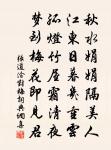 秋水娟娟隔美人
江東日暮幾行雲
孤燈竹屋霜清夜
夢到梅花即見君
張道洽對梅詞典網